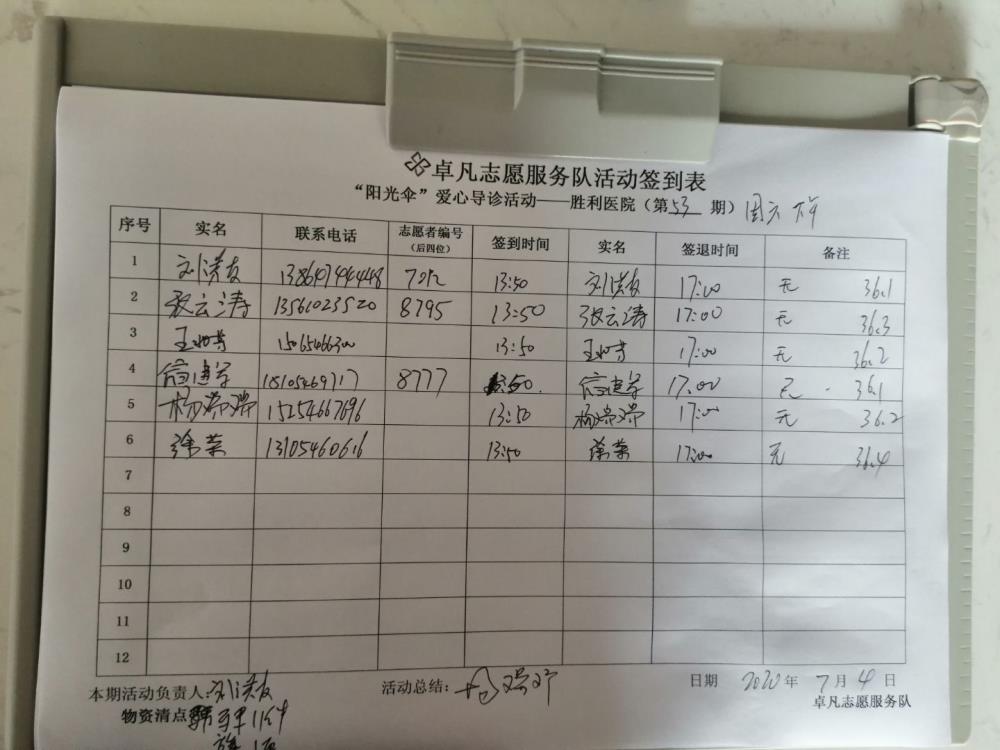 卓凡志愿服务队活动签到表
“阳光伞”爱心导诊活动——胜利医院（第53期）周六下午
序号 实名 联系电话 志愿者编号（后四位） 签到时间 实名 签退时间 备注
1 刘洪友 13:50 刘洪友 17:00 无 36.1
2 张云涛 13561023520 8795 13:50 张云涛 17:00 无 36.3
3 13:50 17:00 无 36.2
4 信建军 18105469717 8777 信建军 17:00 无 36.1
5 杨瑞瑞 15254667696 13:50 杨瑞瑞 17:00 无 36.2
6 徐荣 13105460616 13:50 徐荣 17:00 无 36.4
7
8
9
10
11
12
本期活动负责人:刘洪友 活动总结: 日期 2020年7月4日
物资清点 卓凡志愿服务队